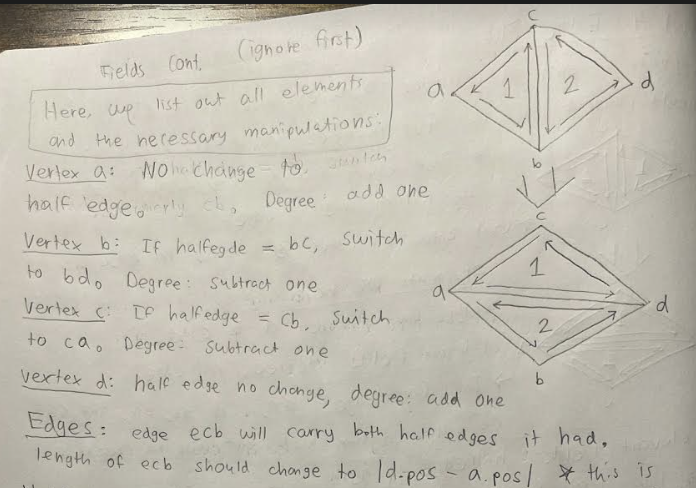 Fields Cont. (ignore first)
Here, we list out all elements
and the necessary manipulations:
Vertex a: No change to
half edge. Degree: add one
Vertex b: If halfegde = bc, switch
to bd. Degree: subtract one
Vertex c: If halfedge = cb, switch
to ca. Degree: subtract one
Vertex d: half edge no change, degree: add one
Edges: edge ecb will carry both half edges it had.
length of ecb should change to |d.pos - a.pos| * this is
c
a 1 2 d
b
c
1
a d
2
b